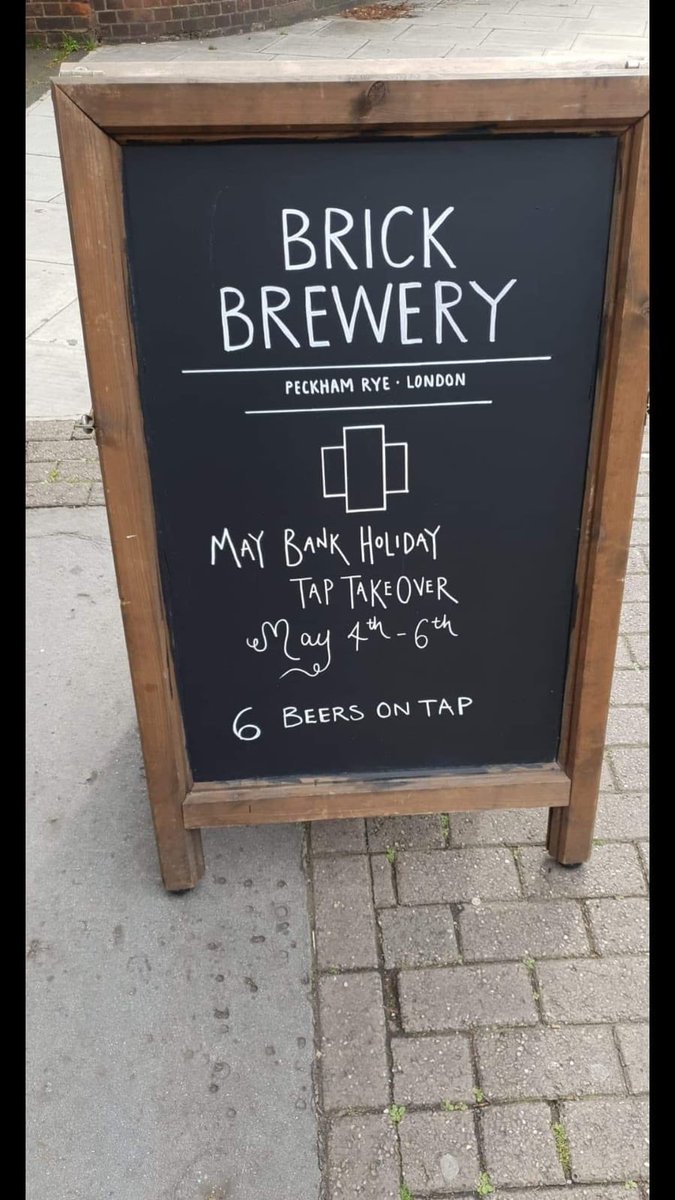 BRICK
BREWERY
PECKHAM RYE · LONDON
MAY BANK HOLIDAY
TAP TAKEOVER
May 4th - 6th
6 BEERS ON TAP